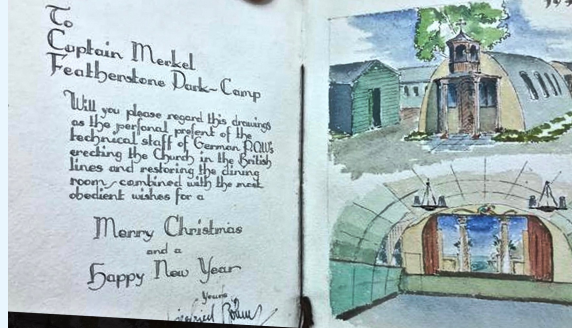 To
Captain Merkel
Featherstone Park-Camp
Will you please regard this drawings
as the personal present of the
technical staff of German P.O.W.s
erecting the Church in the British
lines and restoring the dining
room, combined with the most
obedient wishes for a
Merry Christmas
and a
Happy New Year
Yours